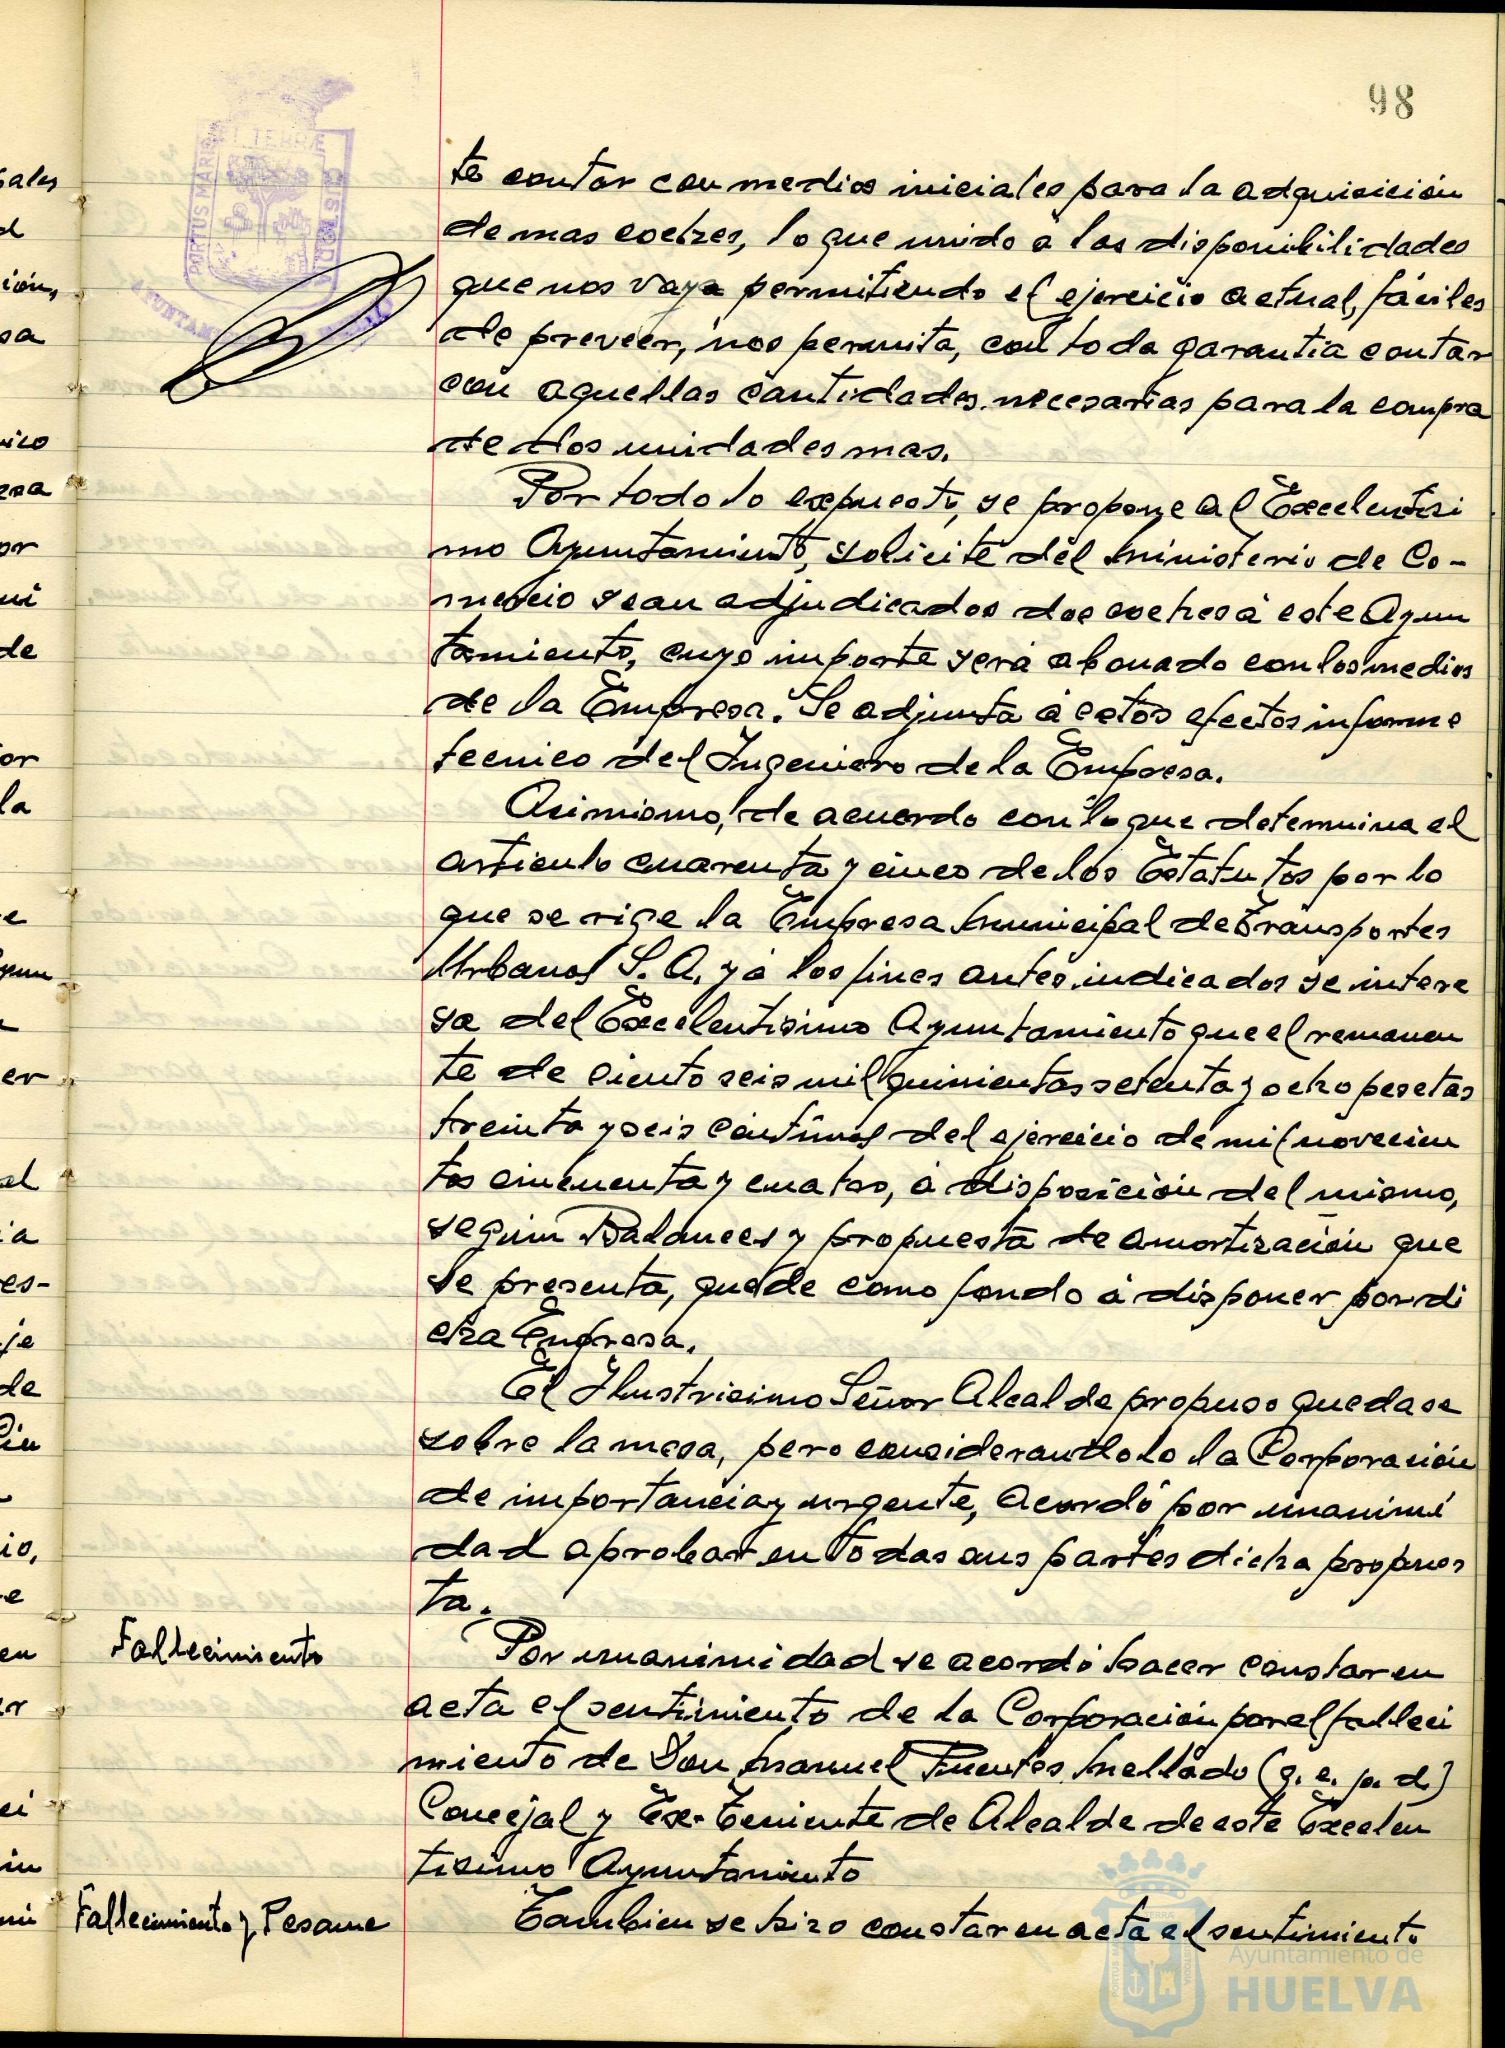 98
te contar con medios iniciales para la adquisición
de mas coches, lo que unido a las disponibilidades
que nos vaya permitiendo el ejercicio actual, fáciles
de preveer, nos permita, con toda garantia contar
con aquellas cantidades necesarias para la compra
de dos unidades mas.
Por todo lo expuesto, se propone al Excelentisi
mo Ayuntamiento, solicite del Ministerio de Co-
mercio sean adjudicados dos coches á este Ayun
tamiento, cuyo importe será abonado con los medios
de la Empresa. Se adjunta á estos efectos informe
tecnico del Ingeniero de la Empresa.
Asimismo, de acuerdo con lo que determina el
articulo cuarenta y cinco de los Estatutos por lo
que se rige la Empresa Municipal de Transportes
Urbanos S. A. y á los fines antes indicados se intere
sa del Excelentisimo Ayuntamiento que el remanen
te de ciento seis mil quinientas setenta y ocho pesetas
treinta y seis centimos del ejercicio de mil novecien
tos cincuenta y cuatro, á disposición del mismo,
según Balances y propuesta de amortización que
se presenta, quede como fondo á disponer por di
cha Empresa.
El Ilustrisimo Señor Alcalde propuso quedase
sobre la mesa, pero considerandolo la Corporación
de importancia y urgente, acordó por unanimi
dad aprobar en todas sus partes dicha propues
ta.
Fallecimiento
Por unanimidad se acordó hacer constar en
acta el sentimiento de la Corporación por el falleci
miento de Don Manuel Fuentes Mellado (q. e. p. d.)
Concejal y Ex-Teniente de Alcalde de este Excelen
tisimo Ayuntamiento
Fallecimiento y Pesame
Tambien se hizo constar en acta el sentimiento
PORTUS MARIS ET TERRÆ CUSTODIA
Ayuntamiento de
HUELVA